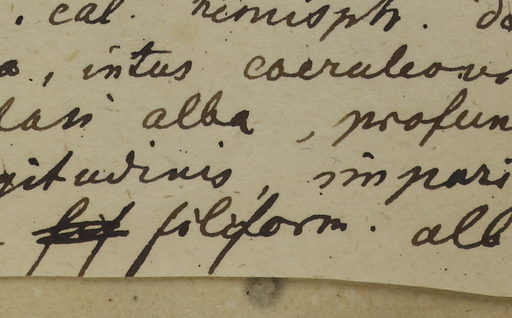 . cal. hemisph. do
, intus coeruleov
lasi alba, profun
gitudinis, impari
filiform. alb